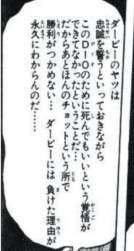 ダービーのヤツは
忠誠を誓うといっておきながら
このDIOのために死んでもいいという覚悟が
できてなかったということだ…
だからあとほんのチョットという所で
勝利がつかめない… ダービーには負けた理由が
永久にわからんのだ……